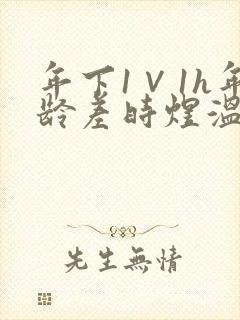 年下1V1h年
龄差时煜温
先生無情